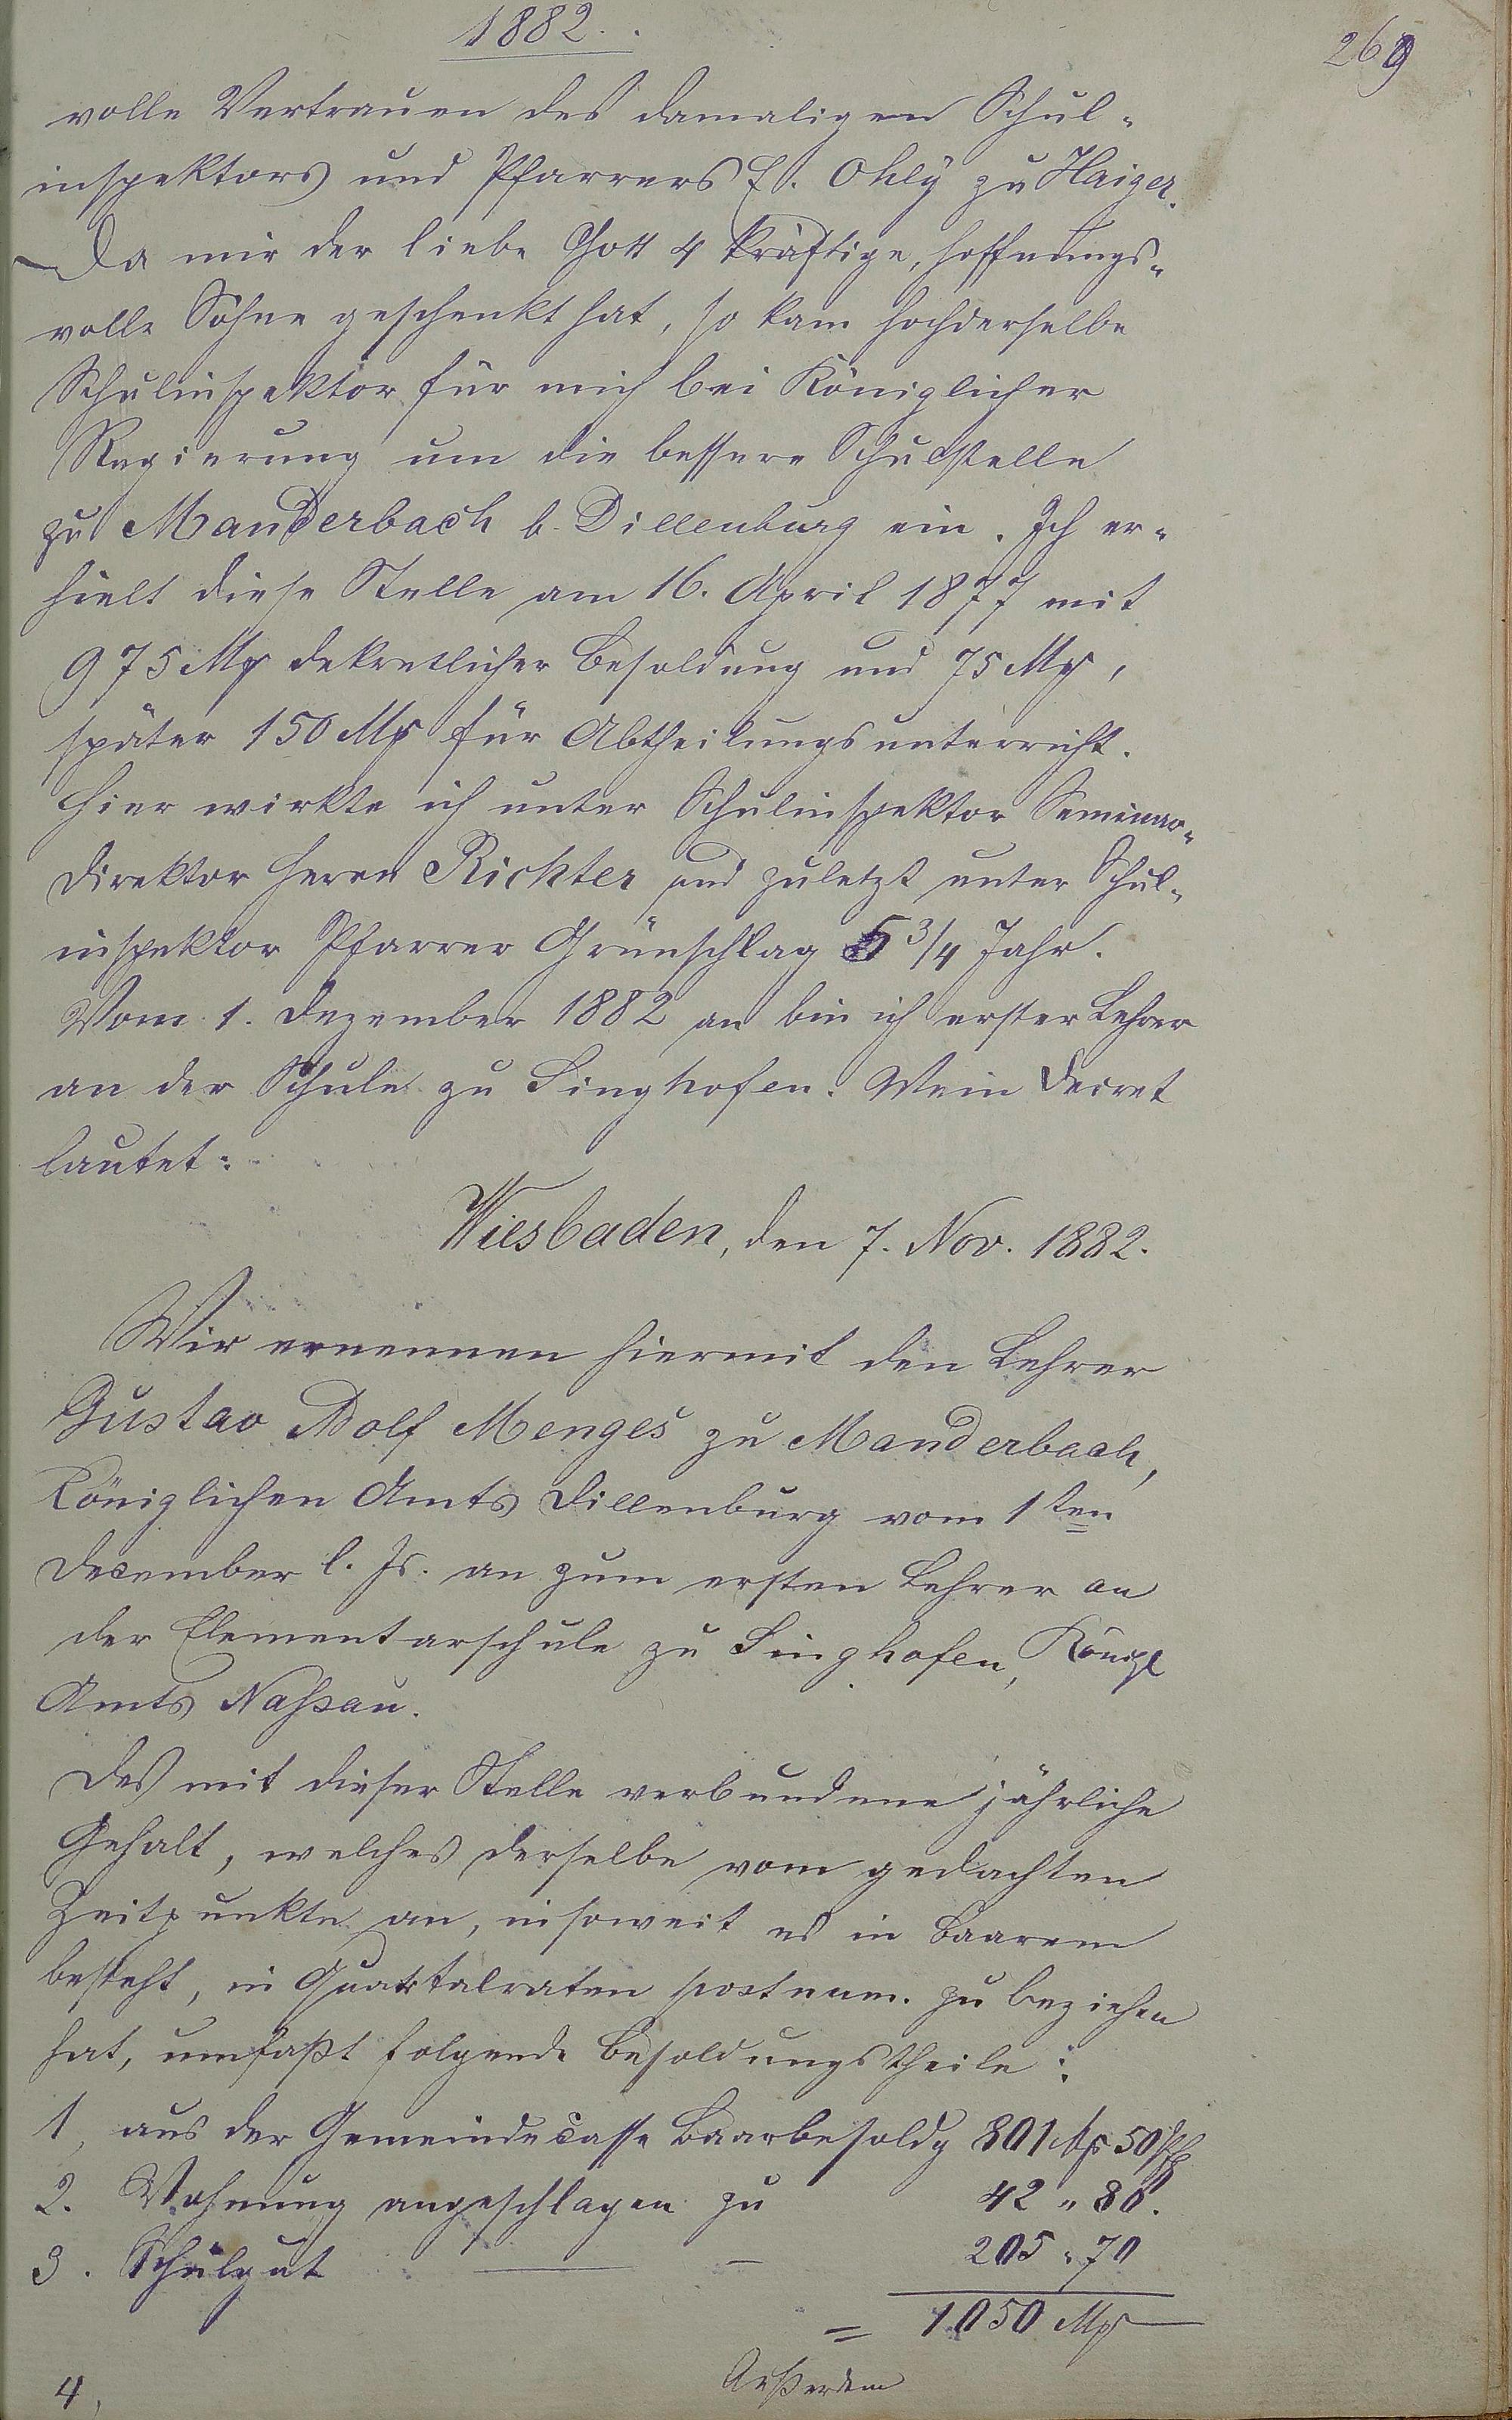 1882.
269
volle Vertrauen des damaligen Schul-
inspektors und Pfarrers E. Ohly zu Haiger.
Da mir der liebe Gott 4 kräftige, hoffnungs-
volle Söhne geschenkt hat, so kam hochderselbe
Schulinspektor für mich bei Königlicher
Regierung um die bessere Schulstelle
zu Manderbach b. Dillenburg ein. Ich er-
hielt diese Stelle am 16. April 1877 mit
975 Mk dekretlicher Besoldung und 75 Mk,
später 150 Mk für Abtheilungsunterricht.
Hier wirkte ich unter Schulinspektor Seminar-
direktor Herrn Richter und zuletzt unter Schul-
inspektor Pfarrer Grünschlag 5 3/4 Jahr.
Vom 1. Dezember 1882 an bin ich erster Lehrer
an der Schule zu Singhofen. Mein Decret
lautet:
Wiesbaden, den 7. Nov. 1882.
Wir ernennen hiermit den Lehrer
Gustav Adolf Menges zu Manderbach,
Königlichen Amts Dillenburg vom 1ten
December l. Js. an zum ersten Lehrer an
der Elementarschule zu Singhofen, Königl
Amts Nassau.
Das mit dieser Stelle verbundene jährliche
Gehalt, welches derselbe vom gedachten
Zeitpunkte an, insoweit es in Baarem
besteht, in Quartalraten postnum. zu beziehen
hat, umfaßt folgende Besoldungstheile:
1, aus der Gemeindecasse Baarbesoldg 801 Mk 50 Pfg
2. Wohnung angeschlagen zu 42 " 80.
3. Schulgut — — 205 " 70
= 1050 Mk
4, Außerdem